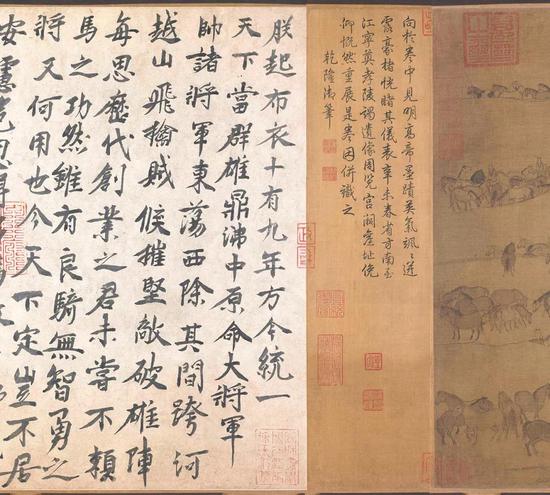 向於卷中見明高帝墨蹟英氣颯〻迸
露豪楮恍睹其儀表辛未春省方南至
江寧奠孝陵謁遺像周覽宮闕舊址俛
仰慨然重展是卷因併識之
乾隆御筆
朕起布衣十有九年方今統一
天下當群雄鼎沸中原命大將軍
帥諸將軍東蕩西除其間跨河
越山飛擒賊候摧堅敵破雄陣
每思歷代創業之君未嘗不賴
馬之功然雖有良騎無智勇之
將又何用也今天下定豈不居
安慮危思